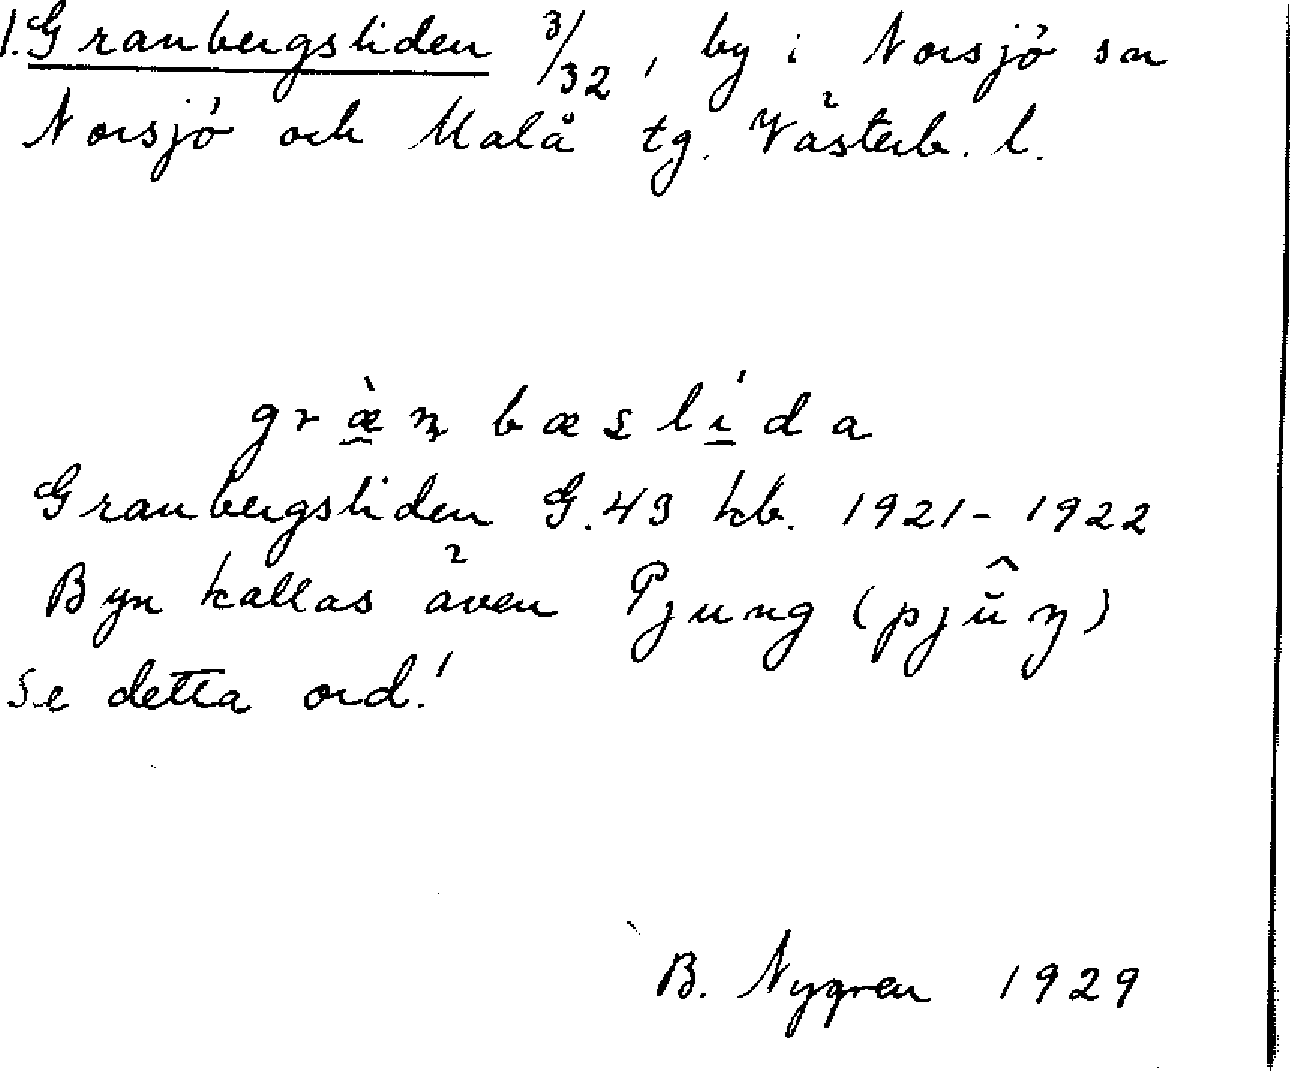 1. Granbergsliden 3/32, by i Norsjö sn
Norsjö och Malå tg. Västerb. l.
græ̀n bæslída
Granbergsliden G.43 kb. 1921-1922
Byn kallas även Pjung (pjûŋ)
Se detta ord!
B. Nygren 1929